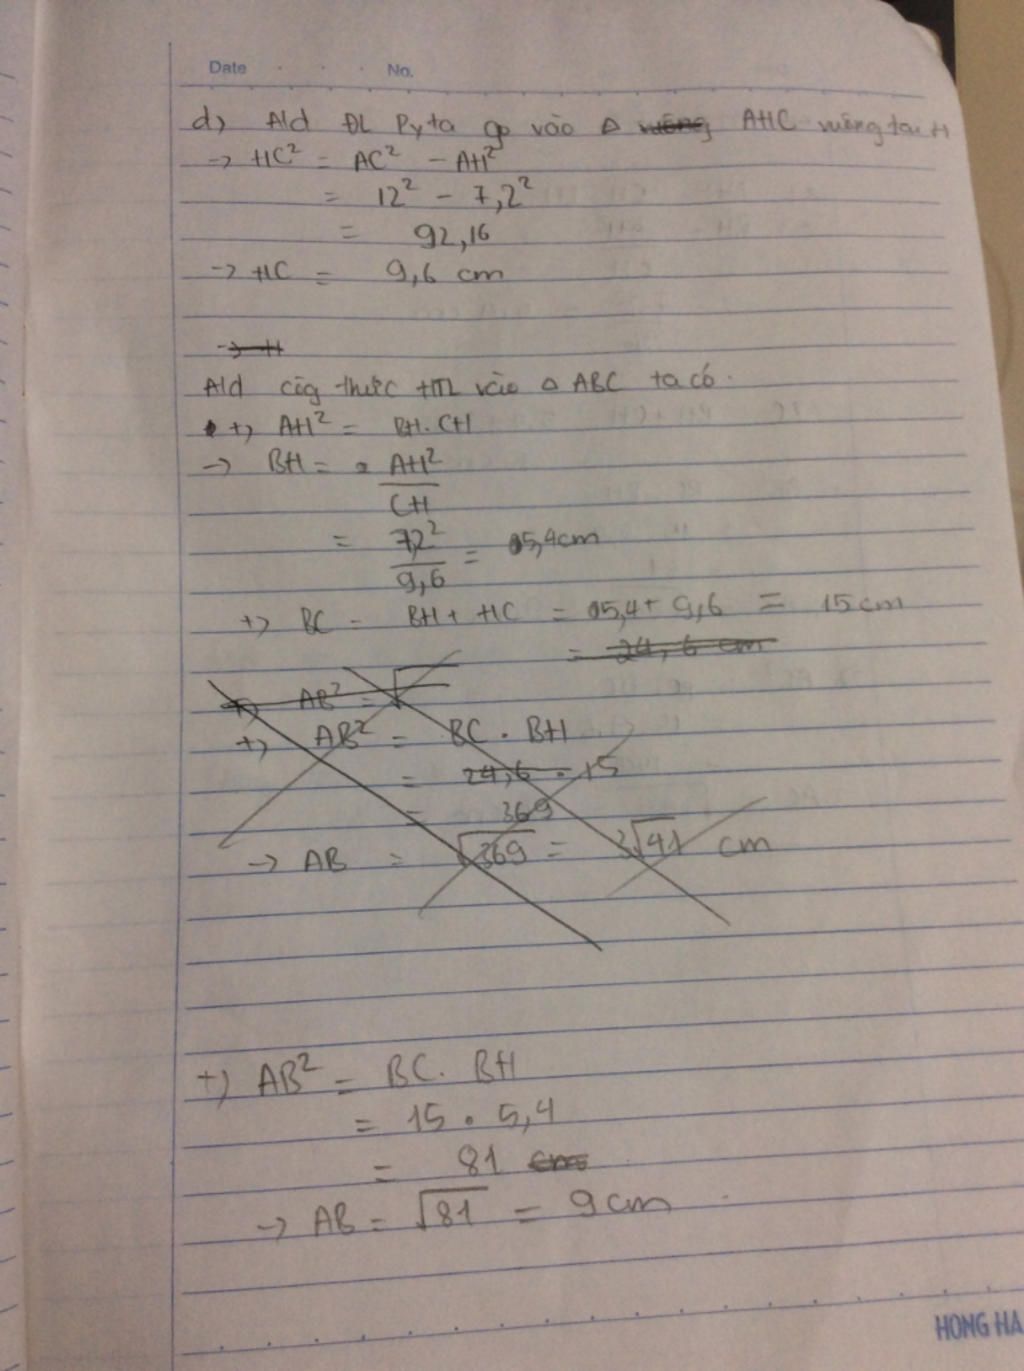 Date No.
d, Ald ĐL Pyta go vào Δ vuông AHC vuông tại H
→ HC² = AC² - AH²
= 12² - 7,2²
= 92,16
→ HC = 9,6 cm
→ H
Ald côg thức HTL vào Δ ABC ta có
+, AH² = BH.CH
→ BH = AH²
CH
= 7,2² = 5,4cm
9,6
+, BC = BH + HC = 5,4 + 9,6 = 15 cm
= 24,6 cm
+, AB² = √
+, AB² = BC . BH
= 24,6 . 15
= 369
→ AB = √369 = 3√41 cm
+) AB² = BC. BH
= 15 . 5,4
= 81 cm
→ AB = √81 = 9cm
HONG HA